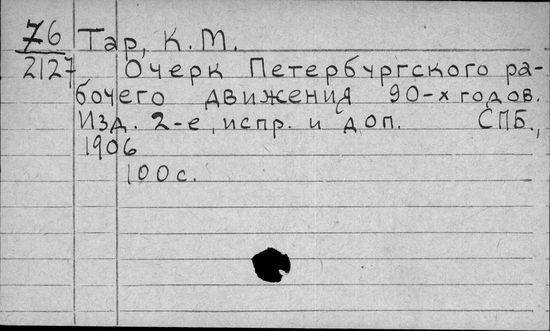 76 Тар, К. М.
2127 Очерк Петербургского ра-
бочего движения 90-х годов.
Изд. 2-е, испр. и доп. СПБ.,
1906
100 с.